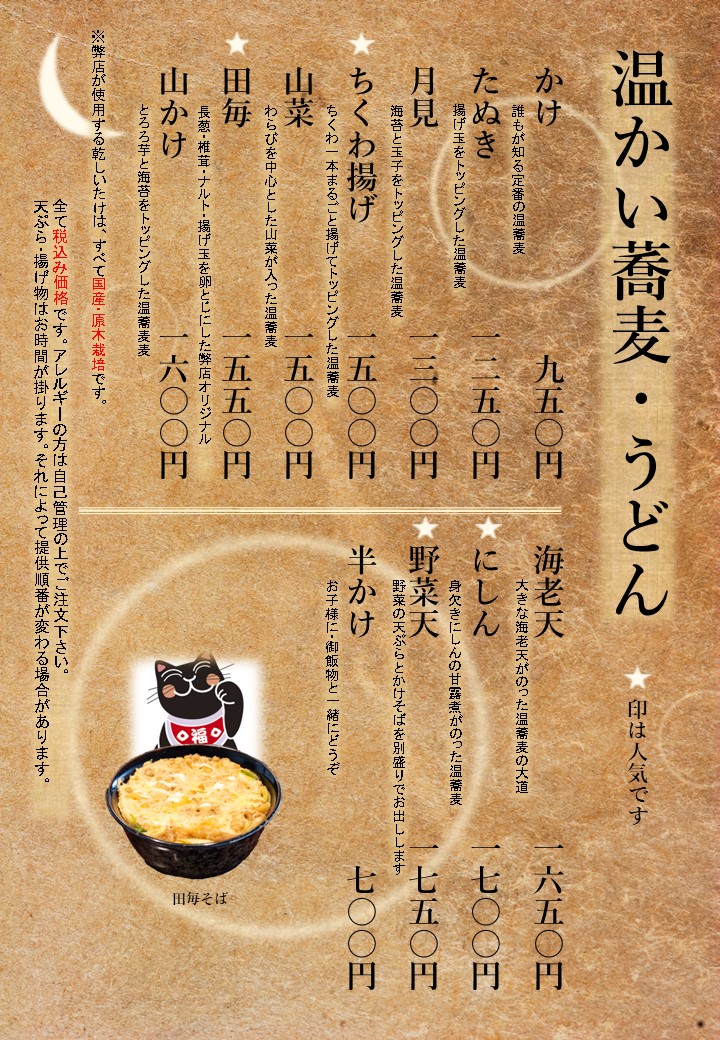 温かい蕎麦・うどん
★印は人気です
かけ
誰もが知る定番の温蕎麦
九五〇円
たぬき
揚げ玉をトッピングした温蕎麦
一二五〇円
月見
海苔と玉子をトッピングした温蕎麦
一三〇〇円
★ちくわ揚げ
ちくわ一本まるごと揚げてトッピングした温蕎麦
一五〇〇円
山菜
わらびを中心とした山菜が入った温蕎麦
一五〇〇円
★田毎
長葱・椎茸・ナルト・揚げ玉を卵とじにした弊店オリジナル
一五五〇円
山かけ
とろろ芋と海苔をトッピングした温蕎麦麦
一六〇〇円
海老天
大きな海老天がのった温蕎麦の大道
一六五〇円
★にしん
身欠きにしんの甘露煮がのった温蕎麦
一七〇〇円
★野菜天
野菜の天ぷらとかけそばを別盛りでお出しします
一七五〇円
半かけ
お子様に・御飯物と一緒にどうぞ
七〇〇円
福
田毎そば
※弊店が使用する乾しいたけは、すべて国産・原木栽培です。
全て税込み価格です。アレルギーの方は自己管理の上でご注文下さい。
天ぷら・揚げ物はお時間が掛ります。それによって提供順番が変わる場合があります。